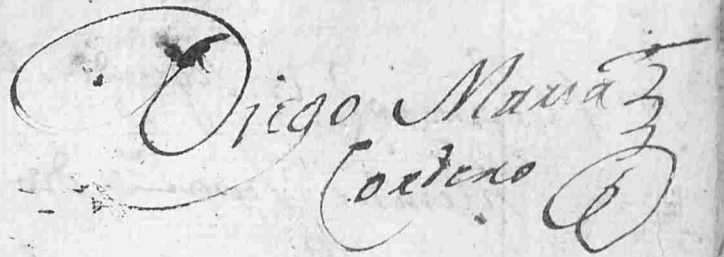 Diego Maria
Cordero